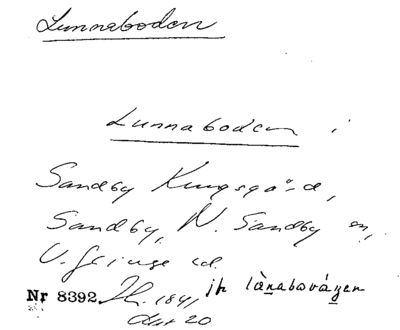 Lunnaboden
Lunnaboden i
Sandby Kungsgård,
Sandby, N. Sandby sn,
V. Göinge hd.
Nr 8392 Jk. 1841 jk lànabovágen
20